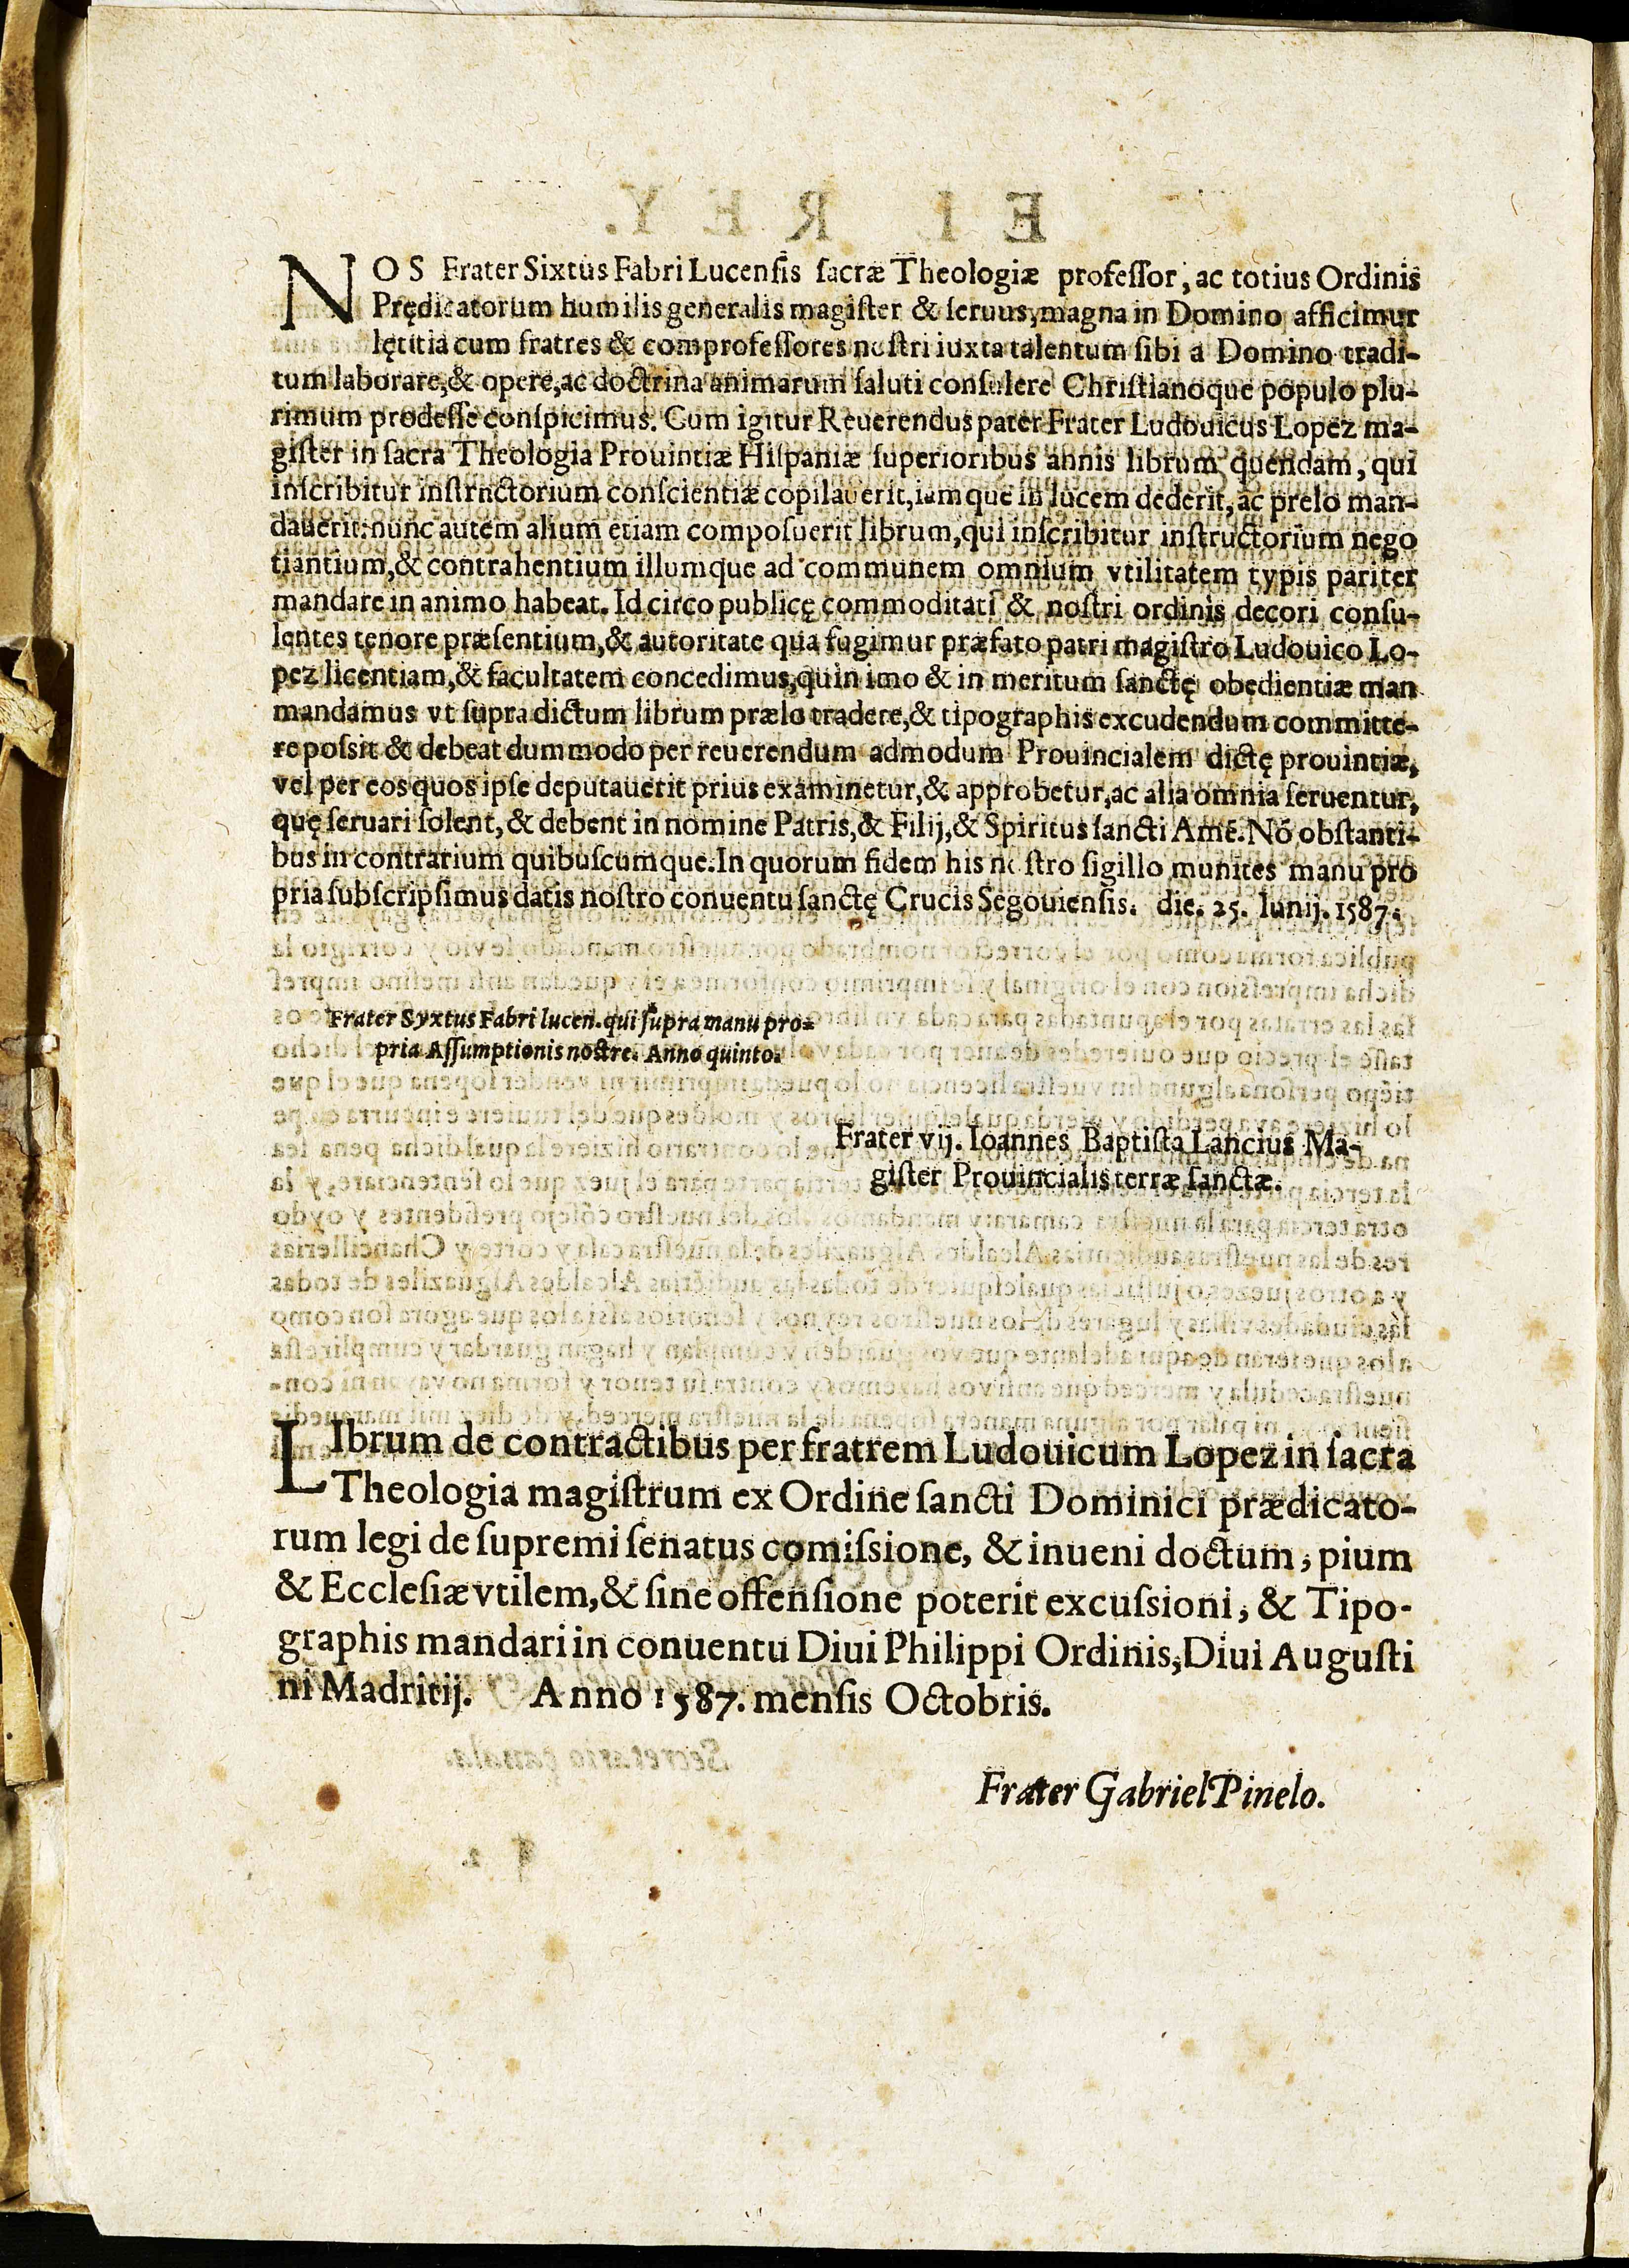 NOS Frater Sixtus Fabri Lucensis ſacræ Theologiæ profeſſor, ac totius Ordinis
Prędicatorum humilis generalis magiſter & ſeruus, magna in Domino afficimur
lętitia cum fratres & comprofeſſores noſtri iuxta talentum ſibi a Domino tradi-
tum laborare, & opere, ac doctrina animarum ſaluti conſulere Chriſtianoque populo plu-
rimum prodeſſe conſpicimus. Cum igitur Reuerendus pater Frater Ludouicus Lopez ma-
giſter in ſacra Theologia Prouintiæ Hiſpaniæ ſuperioribus annis librum quendam, qui
inſcribitur inſtrnctorium conſcientiæ copilauerit, iamque in lucem dederit, ac prelo man-
dauerit: nunc autem alium etiam compoſuerit librum, qui inſcribitur inſtructorium nego
tiantium, & contrahentium illumque ad communem omnium vtilitatem typis pariter
mandare in animo habeat. Id circo publicę commoditati & noſtri ordinis decori conſu-
lentes tenore præſentium, & autoritate qua fugimur præfato patri magiſtro Ludouico Lo-
pez licentiam, & facultatem concedimus, quin imo & in meritum ſanctę obędientiæ man
mandamus vt ſupra dictum librum prælo tradere, & tipographis excudendum committe-
re poſsit & debeat dummodo per reuerendum admodum Prouincialem dictę prouintiæ,
vel per eos quos ipſe deputauerit prius examinetur, & approbetur, ac alia omnia ſeruentur,
quę ſeruari ſolent, & debent in nomine Patris, & Filij, & Spiritus ſancti Amē. Nō obſtanti-
bus in contrarium quibuſcumque. In quorum fidem his noſtro ſigillo munites manu pro
pria ſubſcripſimus datis noſtro conuentu ſanctę Crucis Segouienſis. die. 25. Iunij. 1587.
Frater Syxtus Fabri lucen. qui ſupra manu pro-
pria Aſſumptionis noſtre. Anno quinto.
Frater vij. Ioannes Baptiſta Lancius Ma-
giſter Prouincialis terræ ſanctæ.
LIbrum de contractibus per fratrem Ludouicum Lopez in ſacra
Theologia magiſtrum ex Ordine ſancti Dominici prædicato-
rum legi de ſupremi ſenatus comiſsione, & inueni doctum, pium
& Eccleſiæ vtilem, & ſine offenſione poterit excuſsioni, & Tipo-
graphis mandari in conuentu Diui Philippi Ordinis, Diui Auguſti
ni Madritij. Anno 1587. menſis Octobris.
Frater Gabriel Pinelo.